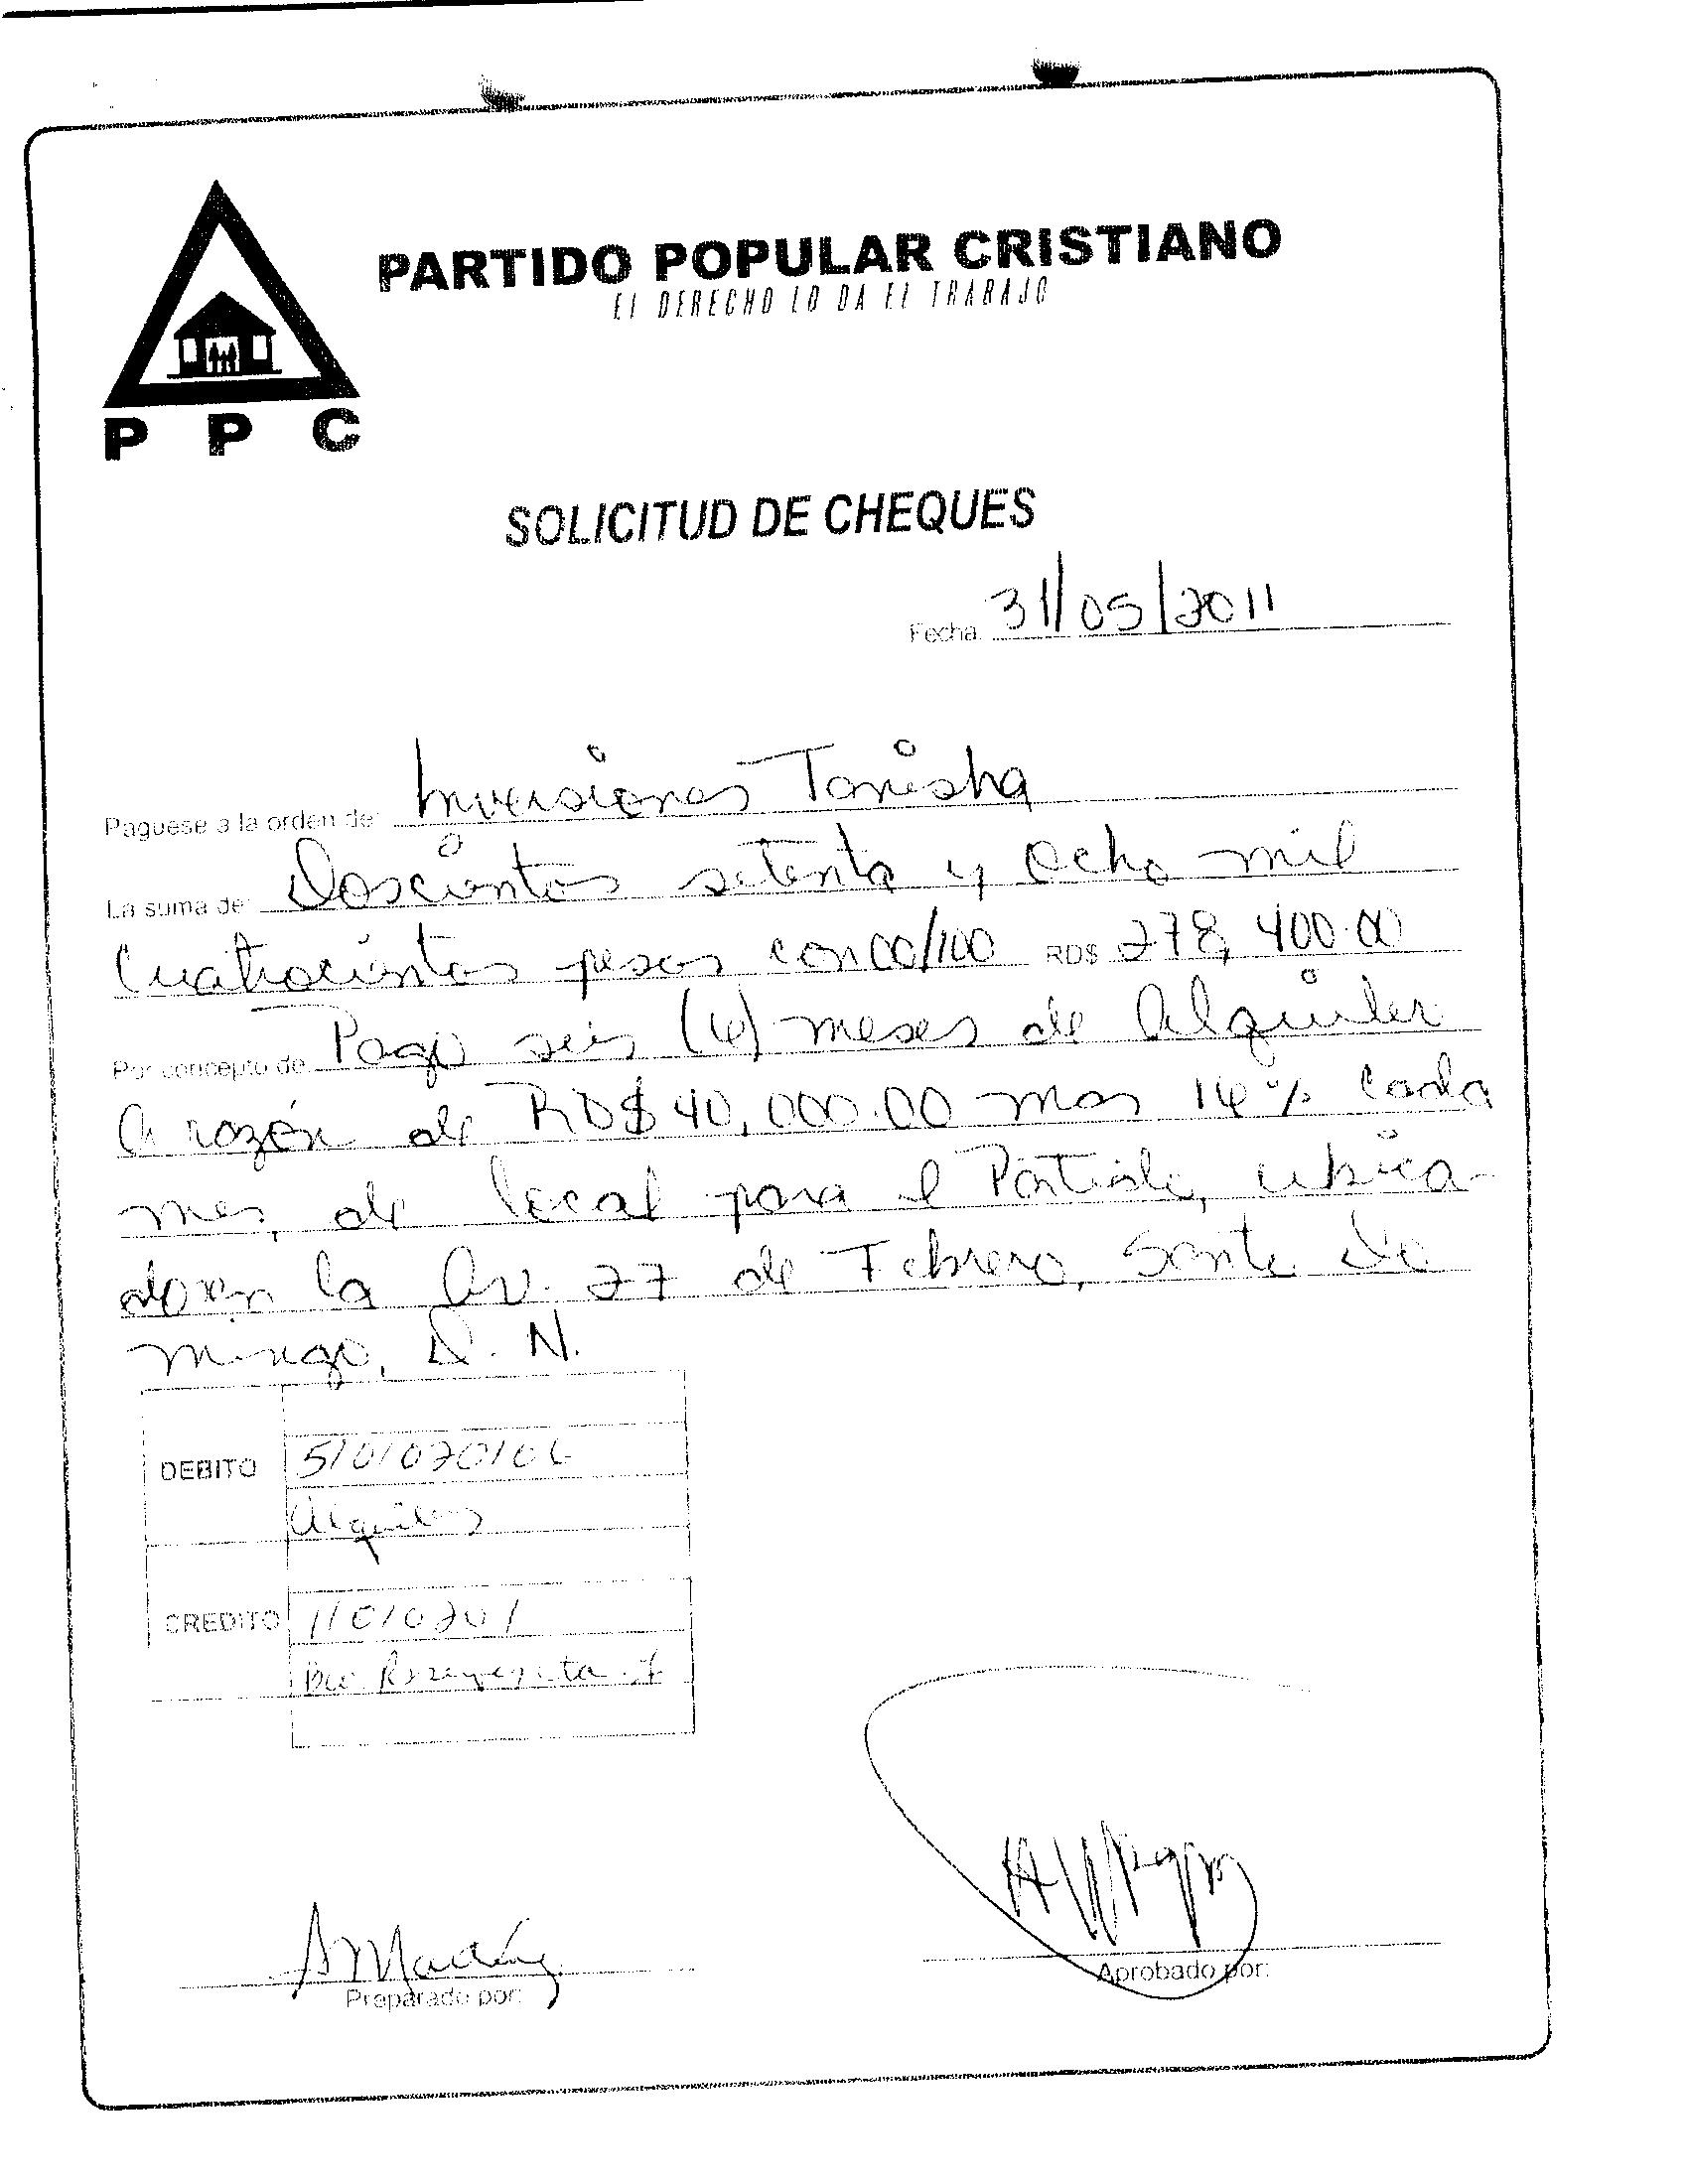 PARTIDO POPULAR CRISTIANO
EL DERECHO LO DA EL TRABAJO
P P C
SOLICITUD DE CHEQUES
Fecha 31/05/2011
Paguese a la orden de: Inversiones Tanisha
La suma de: Doscientos setenta y ocho mil
Cuatrocientos pesos con 00/100 RD$ 278,400.00
Por concepto de: Pago seis (6) meses de Alquiler
A razón de RD$ 40,000.00 mas 16% cada
mes, de local para el Partido, ubica-
do en la Av. 27 de Febrero, Santo Do
mingo, D. N.
DEBITO 5101070106
Alquileres
CREDITO 11010201
Bco.
Preparado por:
Aprobado por: